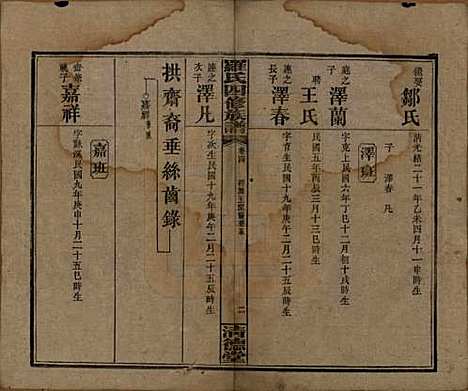 鄒氏
清光緒二十一年乙未四月十一申時生
子 澤春 凡
澤班
之子 澤蘭
字克上民國六年丁巳十二月初十戌時生
聘 王氏
民國五年丙辰三月十三巳時生
蓮之長子 澤春
字育生民國十九年庚午二月二十五辰時生
羅氏四修族譜
卷四
二
清德堂
蓮之次子 澤凡
字次生民國十九年庚午二月二十五辰時生
拱齋裔垂絲齒錄
嘉班
嘉祥
民國九年庚申十月二十五巳時生